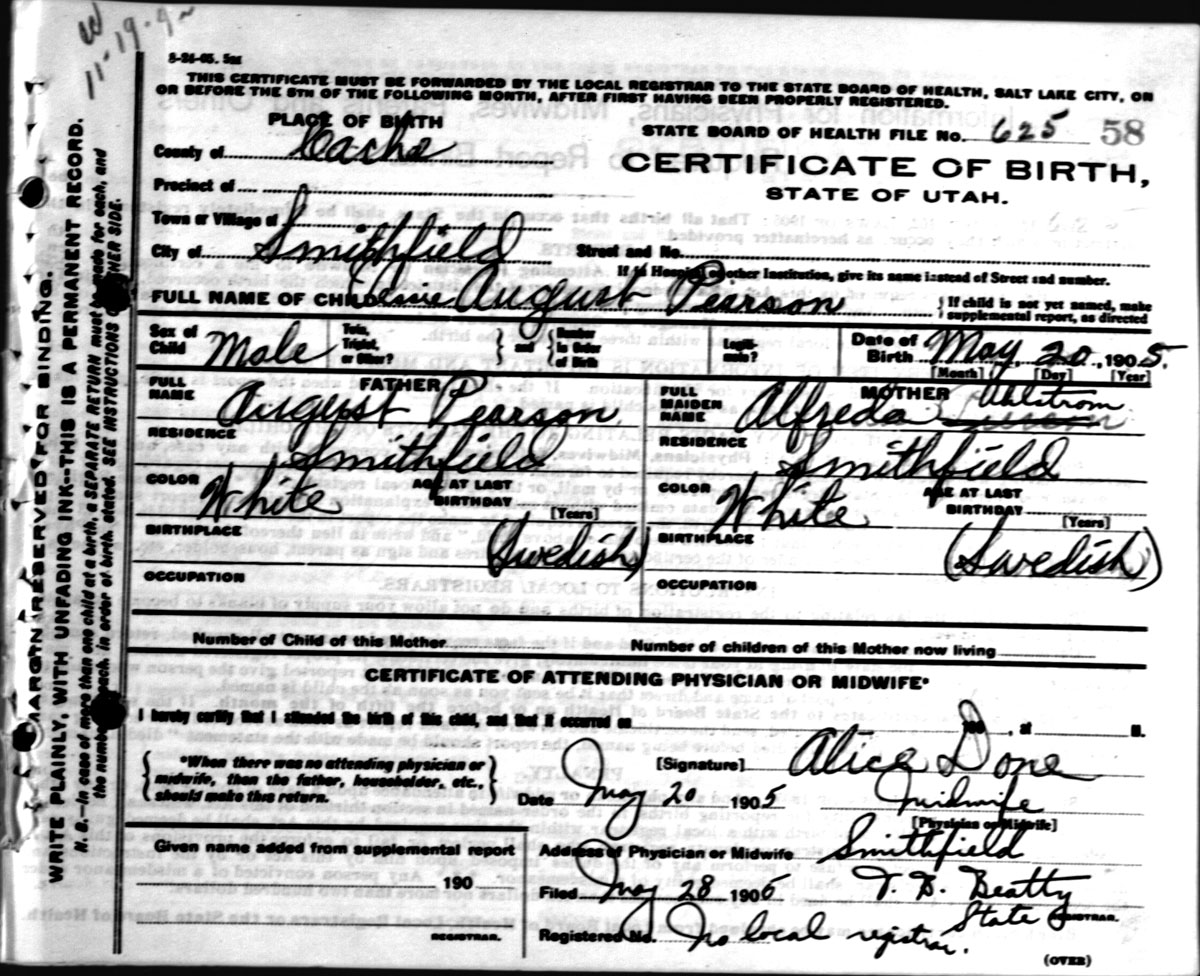 11-19-9
8-24-05. 5M
THIS CERTIFICATE MUST BE FORWARDED BY THE LOCAL REGISTRAR TO THE STATE BOARD OF HEALTH, SALT LAKE CITY, ON
OR BEFORE THE 5TH OF THE FOLLOWING MONTH, AFTER FIRST HAVING BEEN PROPERLY REGISTERED.
PLACE OF BIRTH
STATE BOARD OF HEALTH FILE No. 625 58
County of Cache
CERTIFICATE OF BIRTH,
STATE OF UTAH.
Precinct of
Town or Village of
City of Smithfield Street and No.
If in Hospital or other Institution, give its name instead of Street and number.
FULL NAME OF CHILD August Pearson { If child is not yet named, make
supplemental report, as directed
Sex of Child Male Twin, Triplet, or Other? } and { Number in Order of Birth Legitimate? Date of Birth May 20, 1905.
[Month] [Day] [Year]
FATHER
FULL NAME August Pearson
RESIDENCE Smithfield
COLOR White AGE AT LAST BIRTHDAY
[Years]
BIRTHPLACE (Swedish)
OCCUPATION
MOTHER
FULL MAIDEN NAME Alfreda Ahlstrom
RESIDENCE Smithfield
COLOR White AGE AT LAST BIRTHDAY
[Years]
BIRTHPLACE (Swedish)
OCCUPATION
Number of Child of this Mother Number of children of this Mother now living
CERTIFICATE OF ATTENDING PHYSICIAN OR MIDWIFE*
I hereby certify that I attended the birth of this child, and that it occurred on 190 , at M.
{ *When there was no attending physician or
midwife, than the father, householder, etc.,
should make this return. }
[Signature] Alice Done
Date May 20 1905 Midwife
[Physician or Midwife]
Given name added from supplemental report
190
REGISTRAR.
Address of Physician or Midwife Smithfield
Filed May 28 1906 T. B. Beatty
State REGISTRAR.
Registered No. No local registrar.
(OVER)
MARGIN RESERVED FOR BINDING.
WRITE PLAINLY, WITH UNFADING INK--THIS IS A PERMANENT RECORD.
N. B.--In case of more than one child at a birth, a SEPARATE RETURN must be made for each, and
the number of each, in order of birth, stated. SEE INSTRUCTIONS OTHER SIDE.